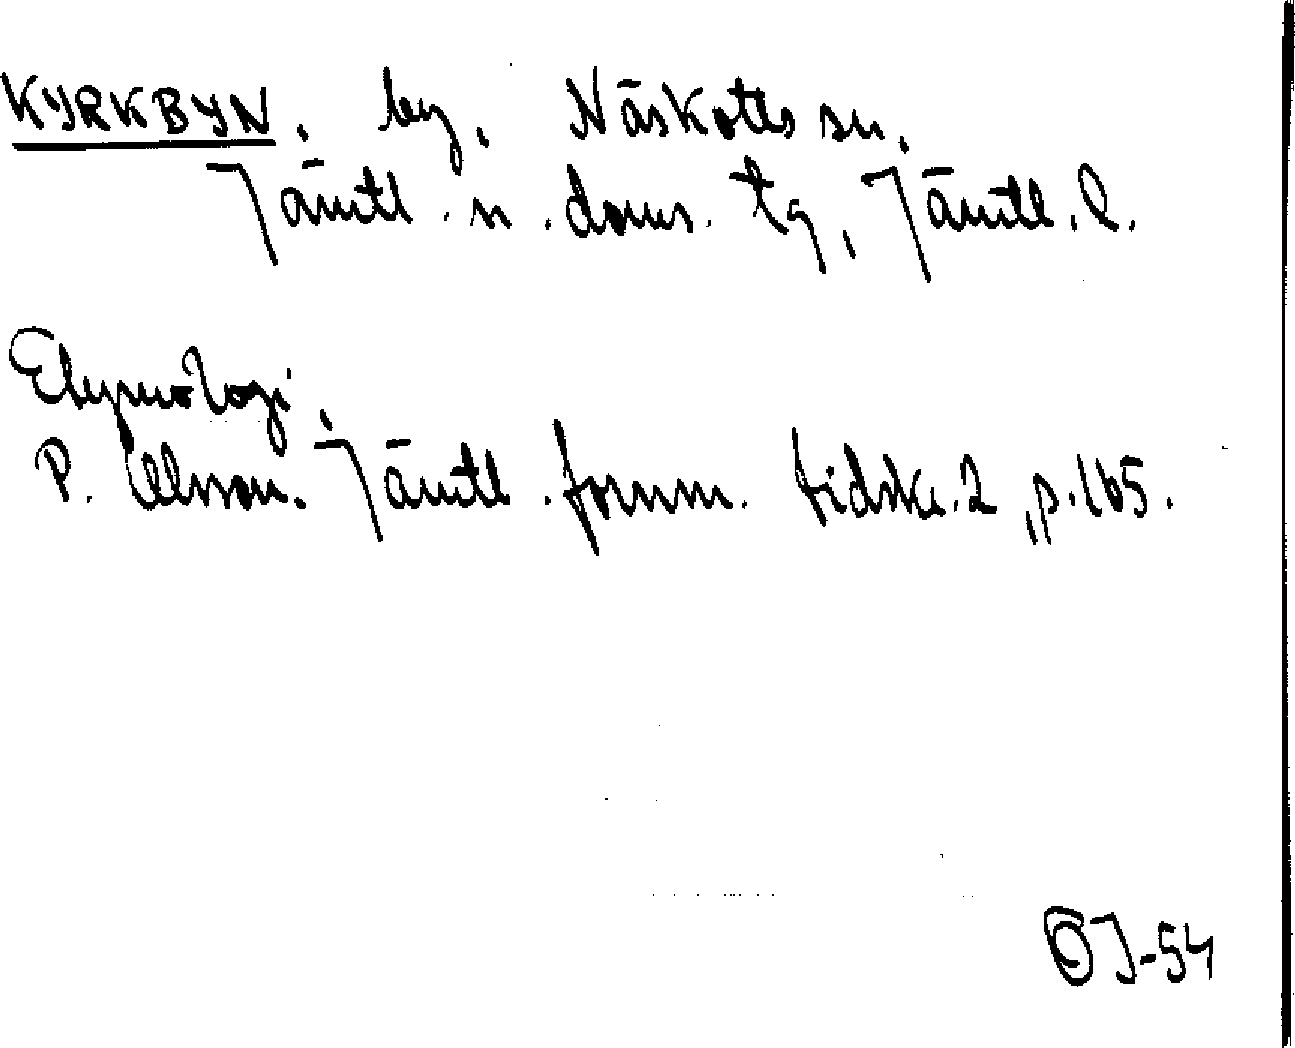 KYRKBYN, by, Näskotts sn,
Jämtl. n. doms. tg, Jämtl. l.
Etymologi,
P. Olsson. Jämtl. fornm. tidskr. 2, p. 165.
ÖJ-54